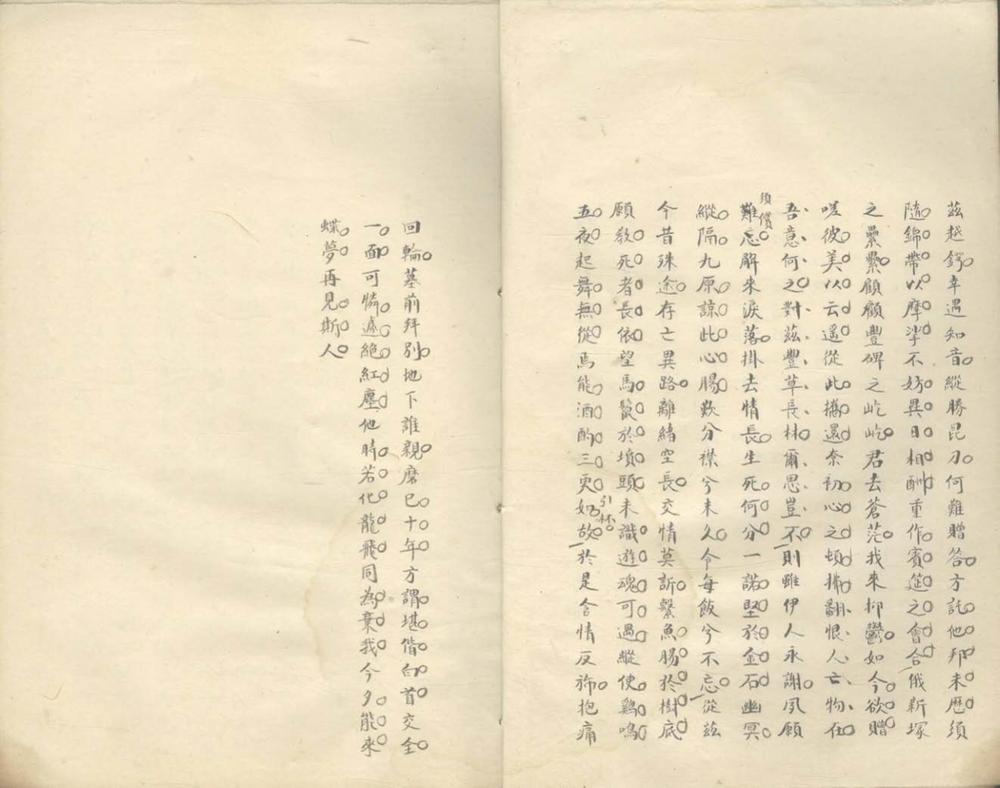 茲越鍔幸遇知音縱勝昆刀何難贈答方託他邦未歷須
隨錦帶以摩挲不妨異日相酬重作賓筵之會合俄新塚
之纍纍顧豐碑之屹屹君去蒼茫我來抑鬱如今欲贈
嗟彼美以云遥從此攜還奈初心之頓拂翻恨人亡物在
吾意何之對茲豐草長林爾思豈不則雖伊人永謝夙願
須償
難忘解來淚落掛去情長生死何分一諾堅於金石幽冥
縱隔九原諒此心腸嘆分襟兮未久今每飯兮不忘從茲
今昔殊途存亡異路離緒空長交情莫訴繫魚腸於樹底
願教死者長依望馬鬣於墳頭未識遊魂可遇縱使鷄鳴
五夜起舞無從焉能酒酌三更如故於是含情反旆抱痛
引杯
回輪墓前拜別地下誰親磨已十年方謂堪偕白首交全
一面可憐遽絕紅塵他時若化龍飛同為棄我今夕能來
蝶夢再見斯人